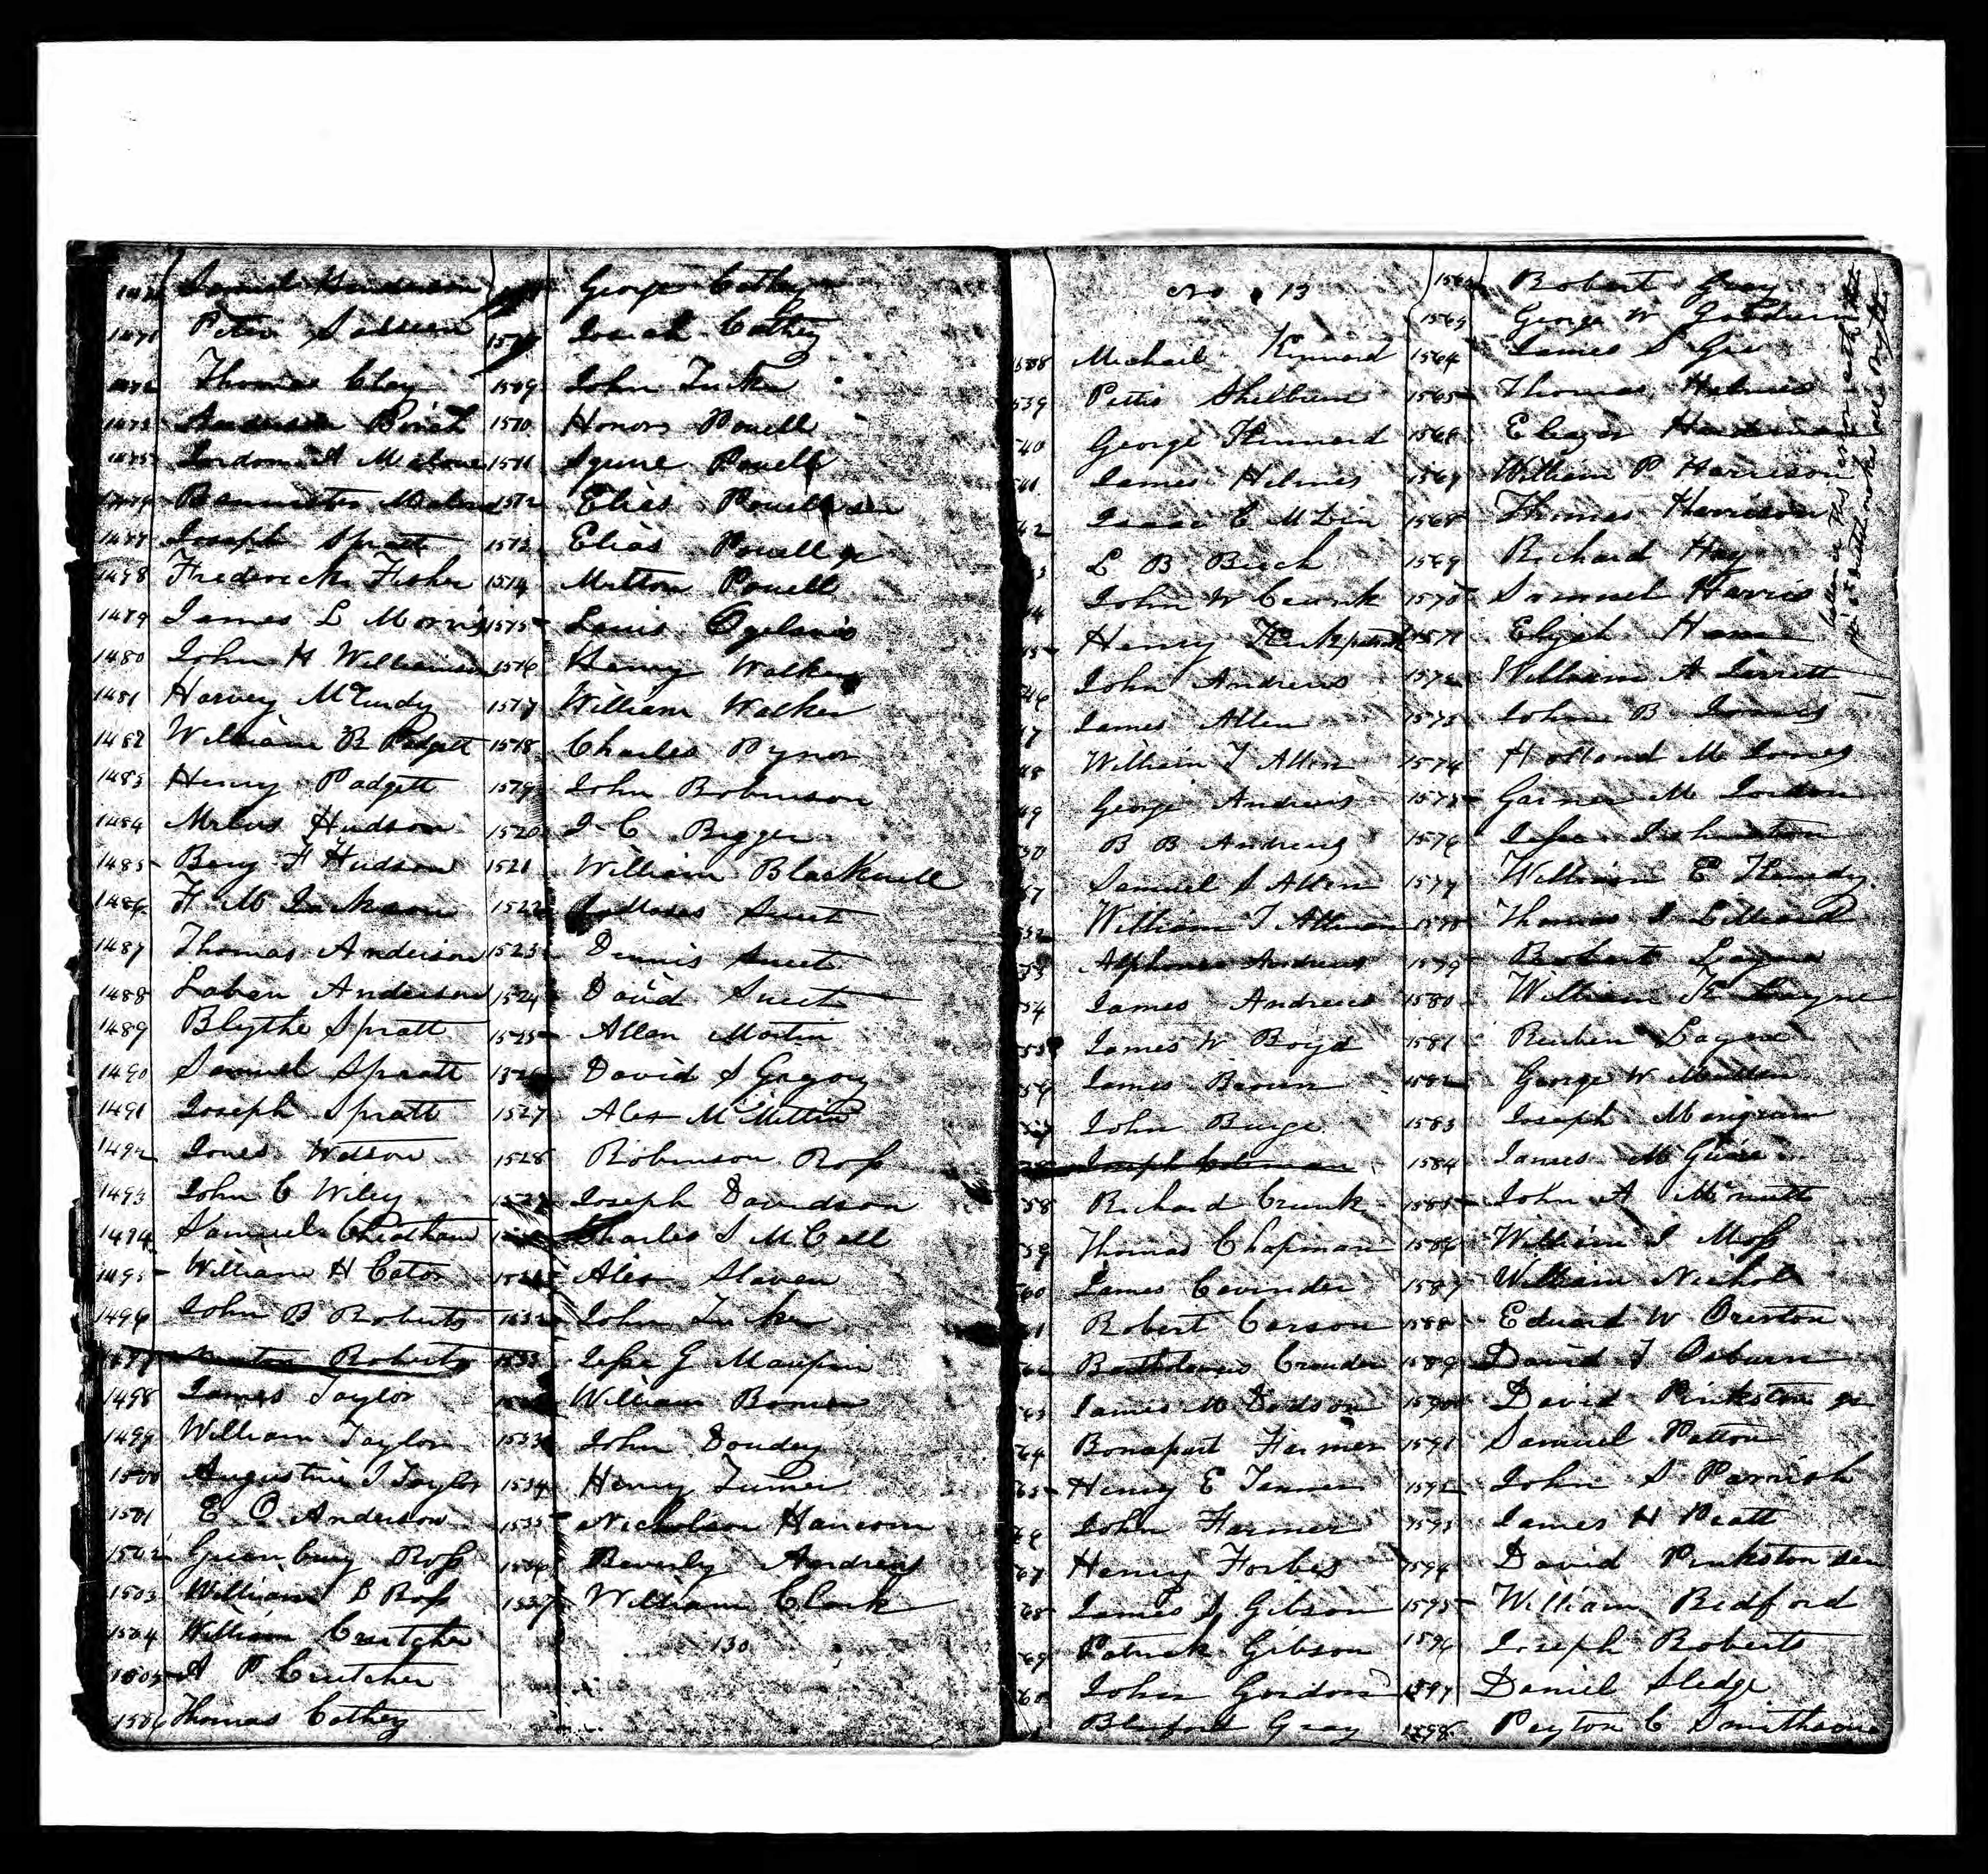 Samuel Henderson
1471 Peter
Thomas Clay
Anderson
Jordon A Malone
Bannister Malone
Joseph Spratt
1478 Frederick Fisher
1479 James L Morris
1480 John H Williamson
1481 Harvey McCurdy
1482 William B Padgett
1483 Henry Padgett
1484 Hudson
1485 Benj F Hudson
1486 F M Jackson
1487 Thomas Anderson
1488 Laban Anderson
1489 Blythe Spratt
1490 Samuel Spratt
1491 Joseph Spratt
1492 Jones Watson
1493 John C Wiley
1494 Samuel Cheatham
1495 William H Eaton
1496 John B Roberts
1497 Newton Roberts
1498 James Taylor
1499 William Taylor
1500 Augustine J Taylor
1501 E C Anderson
1502 Greenbury Ross
1503 William B Ross
1504 William Crutcher
1505 A P Crutcher
1506 Thomas Cathey
George Cathey
Josiah Cathey
1509 John Tucker
1510 Honor Powell
1511 Squire Powell
1512 Elias Powell sen
1513 Elias Powell jr
1514 Milton Powell
1515 Lewis Ogelvie
1516 Henry Walker
1517 William Walker
1518 Charles Pynor
1519 John Robinson
1520 J C Bigger
1521 William Blackwell
1522 Sweet
1523 Dennis Sweet
1524 David Sweet
1525 Allen Martin
1526 David S Gregory
1527 Alex McMillin
1528 Robinson Ross
1529 Joseph Davidson
Charles S McCall
1531 Alex Slaven
1532 John Tucker
1533 Jesse G Maupin
William Bomer
1533 John Doudey
1534 Henry Turner
1535 Nicholson
1536 Beverly Andrews
1537 William Clark
130
No 13
1538 Michael Kinnard
539 Pettis Shelburn
40 George Kinnard
41 James Helmes
42 Isaac C
L B Buch
44 John W Crunk
45 Henry
46 John Andrews
47 James Allen
48 William T Allen
49 George Andrews
50 B B Andrews
Samuel S Allen
552 William T Allman
53 Alphonso Andrews
54 James Andrews
55 James W Boyd
56 James Brown
57 John Burge
Joseph Coleman
58 Richard Crunk
59 Thomas Chapman
60 James Cavender
61 Robert Carson
62 Crowder
63 James M Dodson
64 Bonapart Farmer
65 Henry E Farmer
66 John Farmer
67 Henry Forbes
68 James S Gibson
69 Patrick Gibson
60 John Gordon
Gray
Robert Gray
1563 George W
1564 James S Gee
1565 Thomas Helmes
1566 Eleazer Hardeman
1567 William P Harrison
1568 Thomas Harrison
1569 Richard Hay
1570 Samuel Harris
1571 Elijah Ham
1572 William A Jarrett
1573 John B Jones
1574 Holland M Jones
1575 Garner M Jordon
1576 Jesse Johnston
1577 William E Kenedy
1578 Thomas J Lilliard
1579 Robert Layne
1580 William K Layne
1581 Reuben Layne
1582 George W
1583 Joseph Mangrum
1584 James McGuire
1585 John A McNutt
1586 William J Moss
1587 William Nichols
1588 Edward W Overton
1589 David J Osburn
1590 David Pinkston jr
1591 Samuel Patton
1592 John S Parrish
1593 James H Pratt
1594 David Pinkston sen
1595 William Redford
1596 Joseph Roberts
1597 Daniel Sledge
1598 Peyton C Smithson